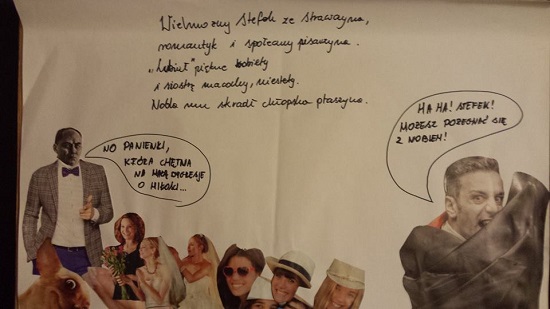 Wielmożny Stefek ze Strawczyna,
romantyk i społeczny pisarzyna.
„Lubieł" piękne kobiety
i siostrę macochy, niestety.
Nobla mu skradł chłopska ptaszyna.
NO PANIENKI,
KTÓRA CHĘTNA
NA MAŁĄ DYGRESJĘ
O MIŁOŚCI...
HA HA! STEFEK!
MOŻESZ POŻEGNAĆ SIĘ
Z NOBLEM!